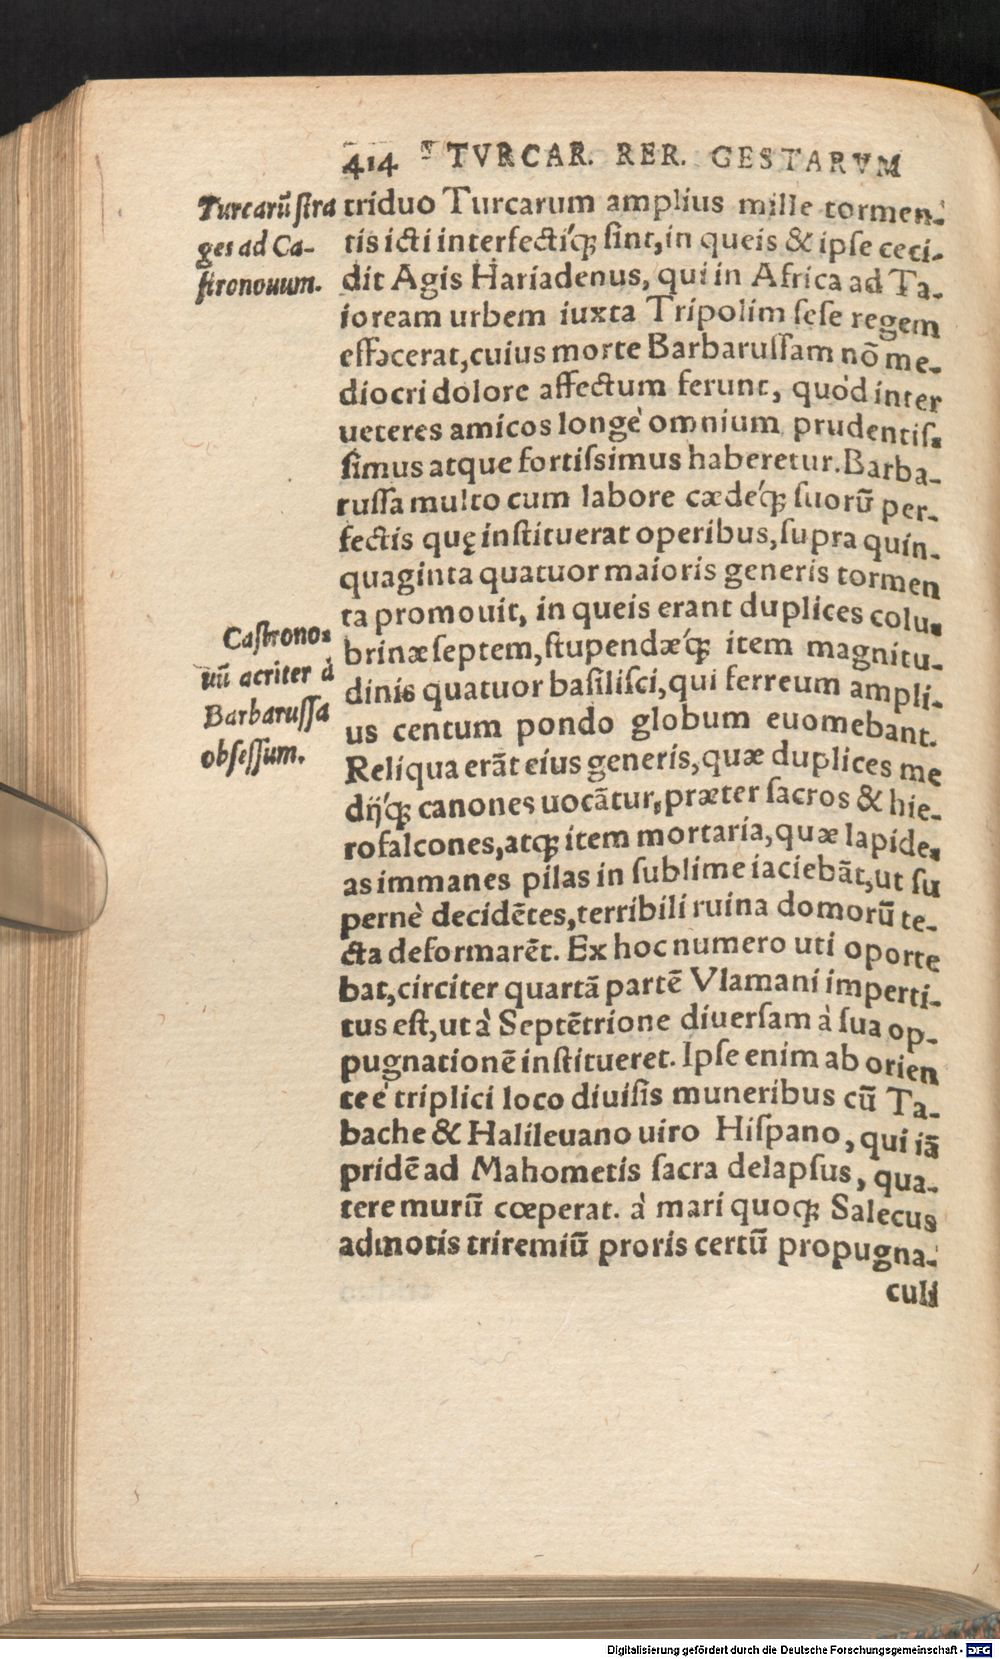 414 TVRCAR. RER. GESTARVM
Turcarū ſtra
ges ad Ca-
ſtronouum.
triduo Turcarum amplius mille tormen-
tis icti interfectíq; ſint, in queis & ipſe ceci-
dit Agis Hariadenus, qui in Africa ad Ta-
ioream urbem iuxta Tripolim ſeſe regem
effecerat, cuius morte Barbaruſſam nō me-
diocri dolore affectum ferunt, quòd inter
ueteres amicos longè omnium prudentiſ-
ſimus atque fortiſsimus haberetur. Barba-
ruſſa multo cum labore cædéq; ſuorū per-
fectis quę inſtituerat operibus, ſupra quin-
quaginta quatuor maioris generis tormen
ta promouit, in queis erant duplices colu-
brinæ ſeptem, ſtupendæq́; item magnitu-
dinis quatuor baſiliſci, qui ferreum ampli-
us centum pondo globum euomebant.
Caſtrono-
uū acriter à
Barbaruſſa
obſeſſum.
Reliqua erāt eius generis, quæ duplices me
dijq́; canones uocātur, præter ſacros & hie-
rofalcones, atq; item mortaria, quæ lapide-
as immanes pilas in ſublime iaciebāt, ut ſu
pernè decidētes, terribili ruina domorū te-
cta deformarēt. Ex hoc numero uti oporte
bat, circiter quartā partē Vlamani imperti-
tus eſt, ut à Septētrione diuerſam à ſua op-
pugnationē inſtitueret. Ipſe enim ab orien
te è triplici loco diuiſis muneribus cū Ta-
bache & Halileuano uiro Hiſpano, qui iā
pridē ad Mahometis ſacra delapſus, qua-
tere murū cœperat. à mari quoq; Salecus
admotis triremiū proris certū propugna-
culi
Digitalisierung gefördert durch die Deutsche Forschungsgemeinschaft - DFG